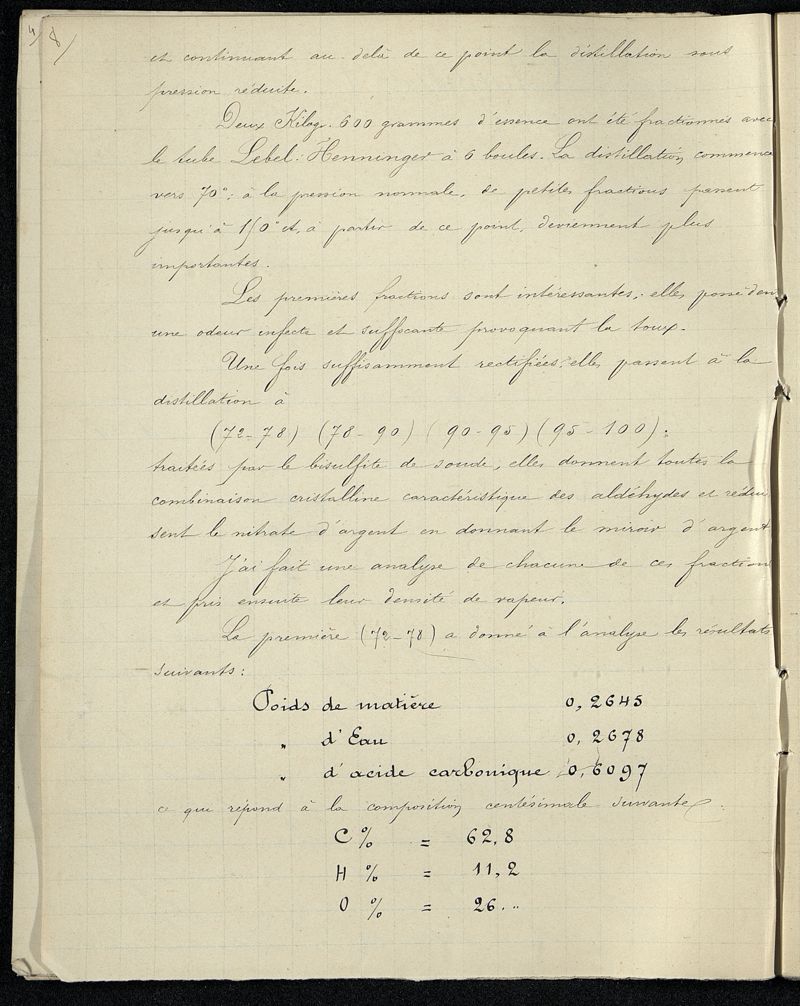 4 8/
et continuant au delà de ce point la distillation sous
pression réduite.
Deux Kilogr. 600 grammes d'essence ont été fractionnés avec
le tube Lebel-Henninger à 6 boules. La distillation commence
vers 70°; à la pression normale, de petites fractions passent
jusqu'à 150° et, à partir de ce point, deviennent plus
importantes.
Les premières fractions sont intéressantes; elles possèden
une odeur infecte et suffocante provoquant la toux.
Une fois suffisamment rectifiées, elles passent à la
distillation à
(72-78) (78-90) (90-95) (95-100):
traitées par le bisulfite de soude, elles donnent toutes la
combinaison cristalline caractéristique des aldéhydes et rédui
sent le nitrate d'argent en donnant le miroir d'argent
J'ai fait une analyse de chacune de ces fraction
et pris ensuite leur densité de vapeur.
La première (72-78) a donné à l'analyse les résultats
suivants:
Poids de matière 0,2645
" d'Eau 0,2678
" d'acide carbonique 0,6097
ce qui répond à la composition centésimale suivante:
C % = 62,8
H % = 11,2
O % = 26..